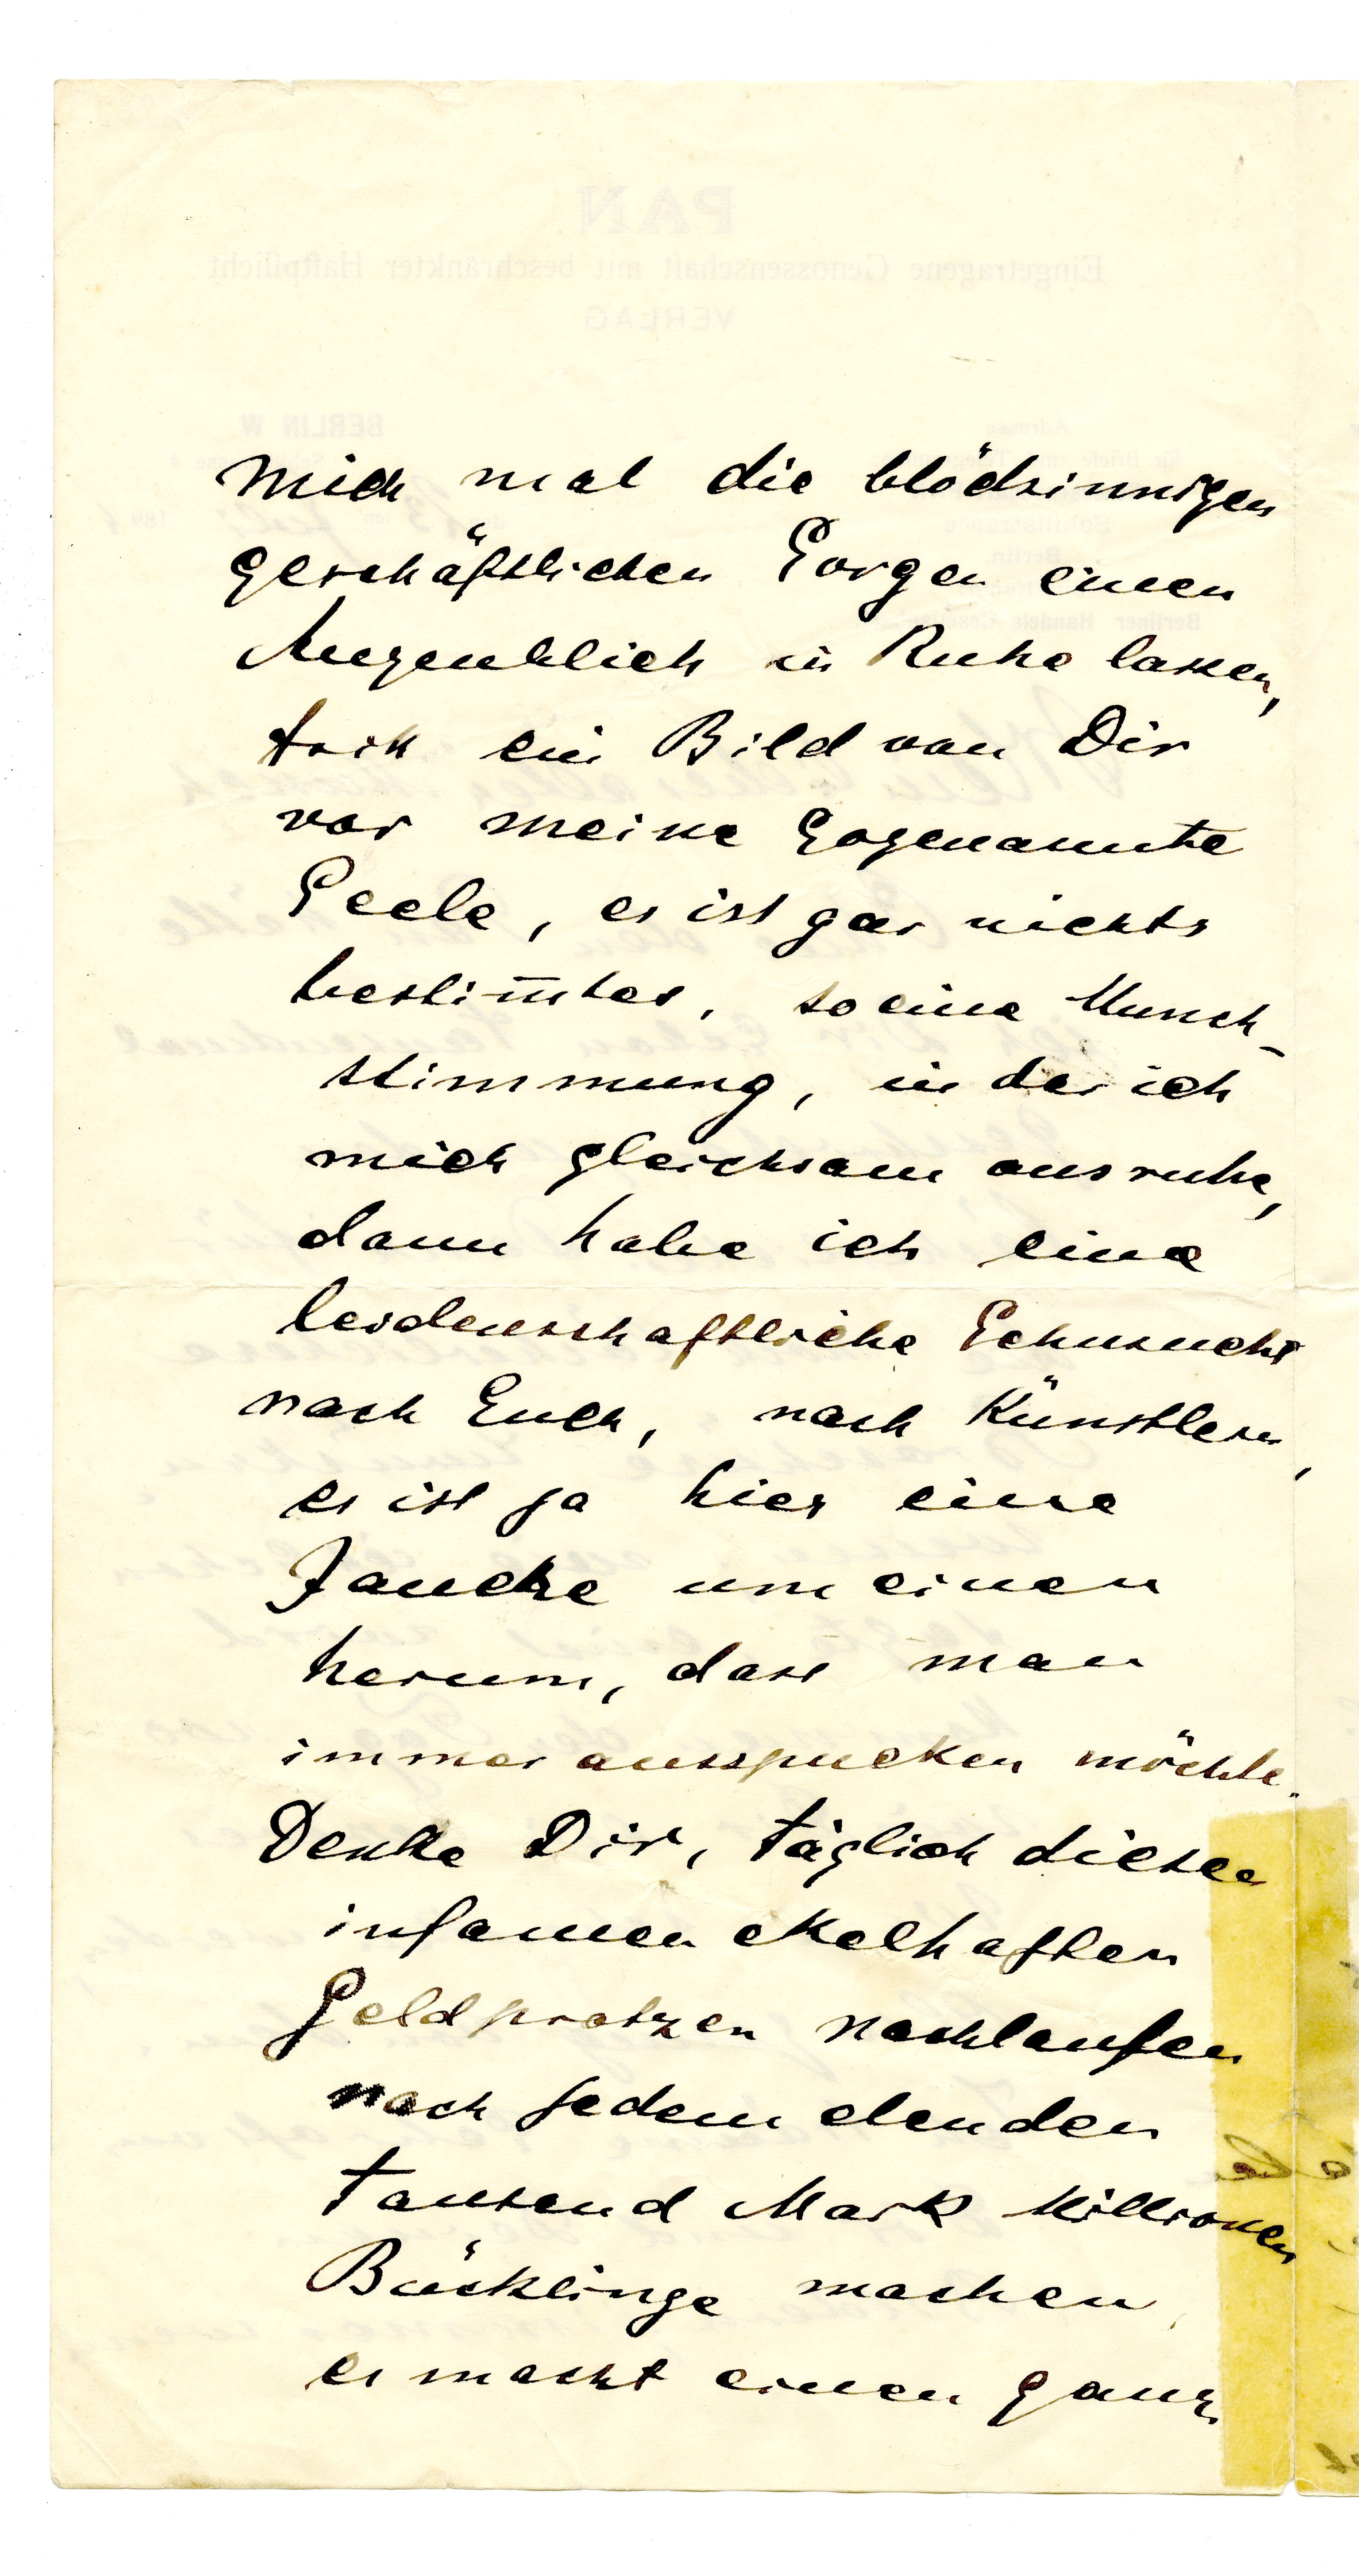 mich mal die blödsinnigen
geschäftlichen Sorgen einen
Augenblick in Ruhe lassen,
tritt ein Bild von Dir
vor meine sogenannte
Seele, es ist gar nichts
bestim̅tes, so eine Wunsch-
stimmung, in der ich
mich gleichsam ausruhe,
dann habe ich eine
leidenschaftliche Sehnsucht
nach Euch, nach Künstlern,
es ist ja hier eine
Jauche um einen
herum, dass man
immer ausspucken möchte.
Denke Dir, täglich diesen
infamen ekelhaften
Geldprotzen nachlaufen
nach jedem elenden
tausend Mark Millionen
Bücklinge machen,
es macht einen ganz
PAN
Eingetragene Genossenschaft mit beschränkter Haftpflicht
VERLAG
BERLIN W
Adresse